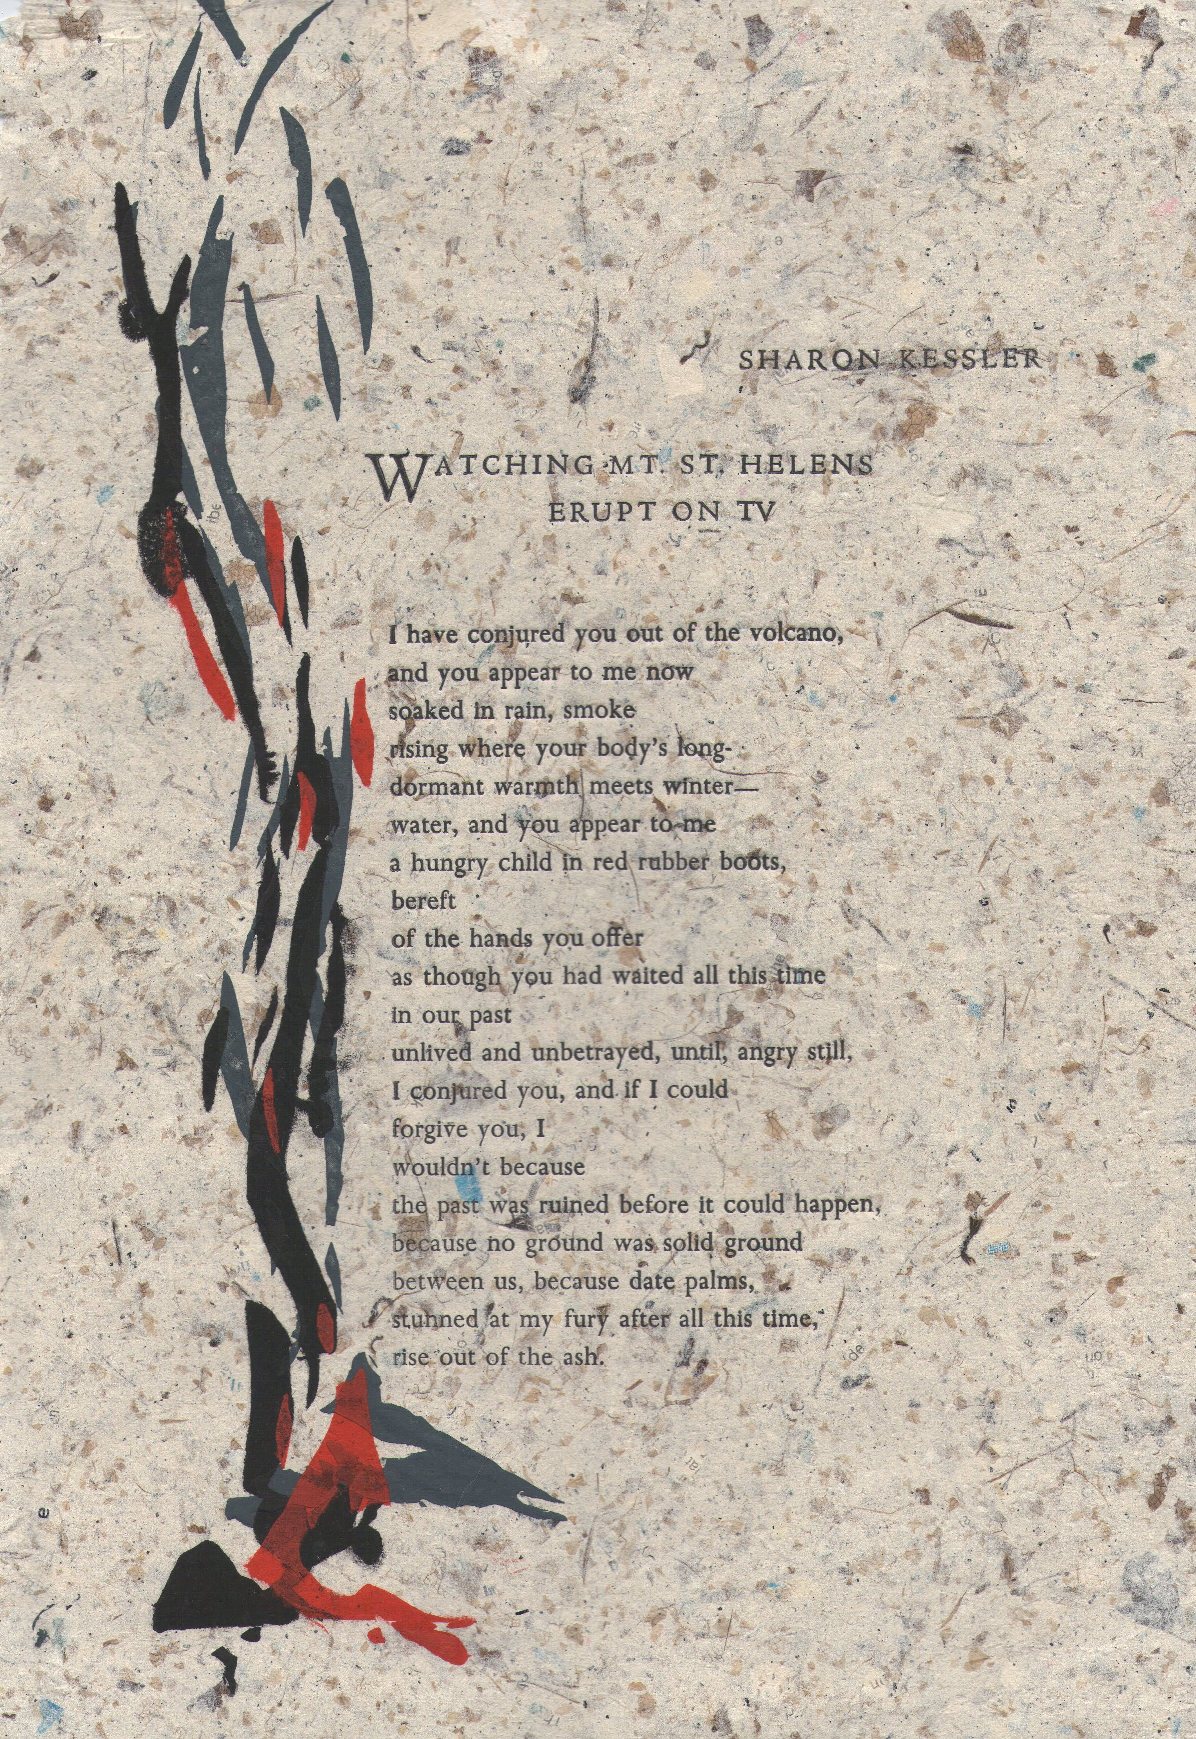 SHARON KESSLER
WATCHING MT. ST. HELENS
ERUPT ON TV
I have conjured you out of the volcano,
and you appear to me now
soaked in rain, smoke
rising where your body's long-
dormant warmth meets winter—
water, and you appear to me
a hungry child in red rubber boots,
bereft
of the hands you offer
as though you had waited all this time
in our past
unlived and unbetrayed, until, angry still,
I conjured you, and if I could
forgive you, I
wouldn't because
the past was ruined before it could happen,
because no ground was solid ground
between us, because date palms,
stunned at my fury after all this time,
rise out of the ash.